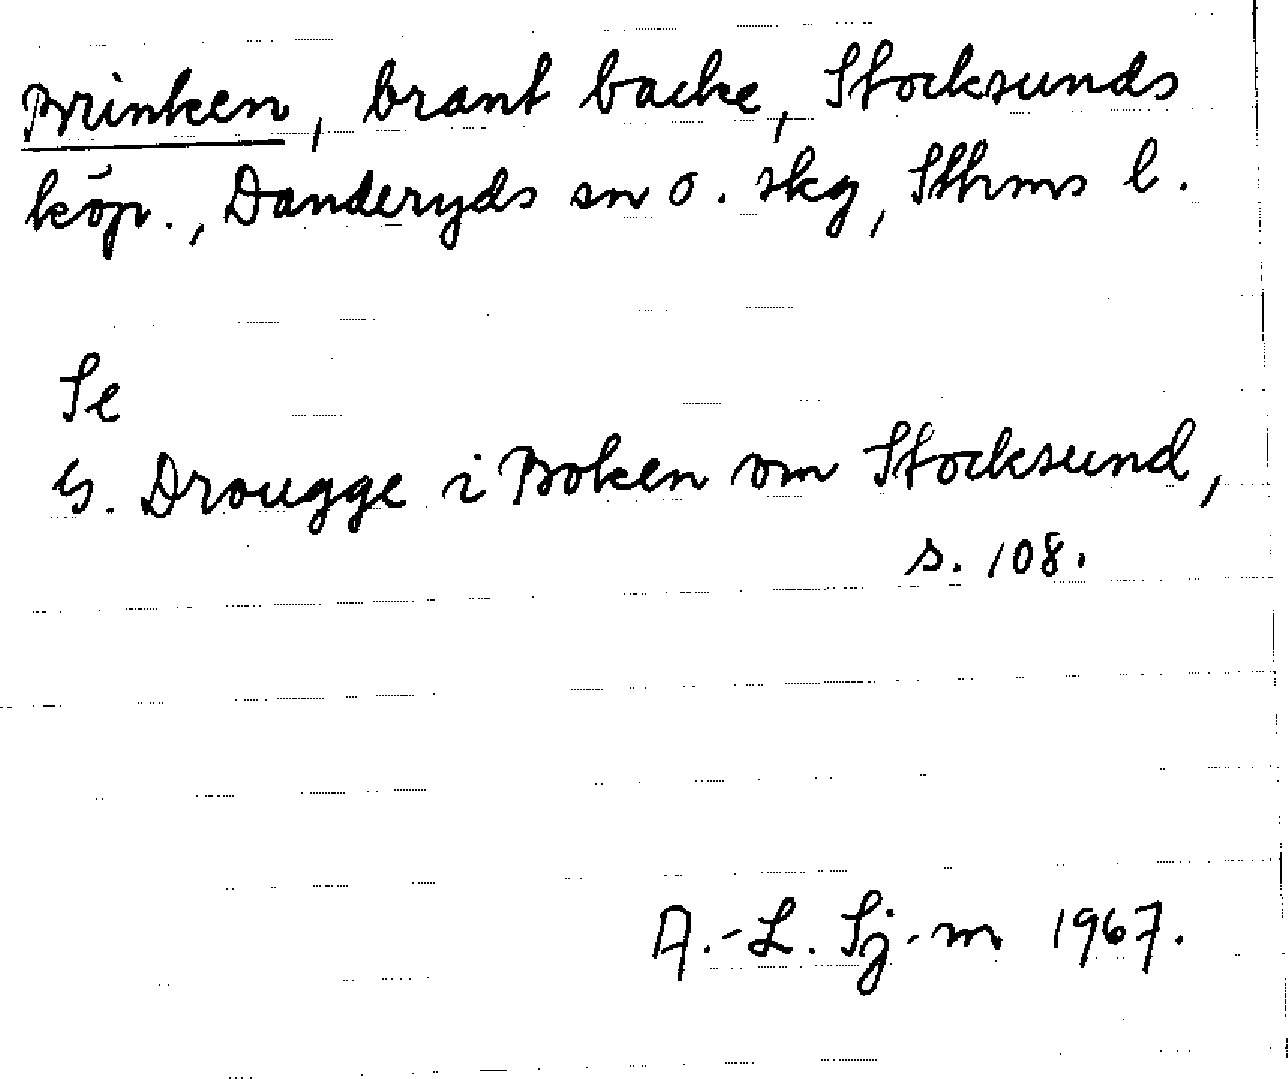 Brinken, brant backe, Stocksunds
köp., Danderyds sn o. skg, Sthms l.
Se
G. Drougge i Boken om Stocksund,
s. 108.
A.-L. Sj-m 1967.